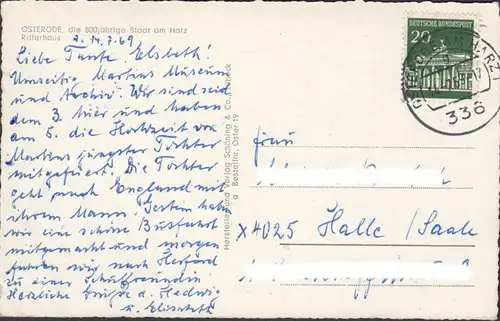 OSTERODE, die 800jährige Stadt am Harz
Ritterhaus
d. 14.7.69
Liebe Tante Elsbeth!
Umseitig Martins Museum
und Archiv. Wir sind seit
dem 3. hier und haben
am 5. die Hochzeit von
Martins jüngster Tochter
mitgefeiert. Die Tochter
geht nach England mit
ihrem Mann. Gestern haben
wir eine schöne Busfahrt
mitgemacht und morgen
fahren wir nach Herford
zu einer Schulfreundin
Herzliche Grüße d. Hedwig
u. Elisabeth
Hersteller und Verlag Schöning & Co., Lübeck
Bestellnr. Oster 19
DEUTSCHE BUNDESPOST
20
OSTERODE AM HARZ
336
Frau
X 4025 Halle / Saale